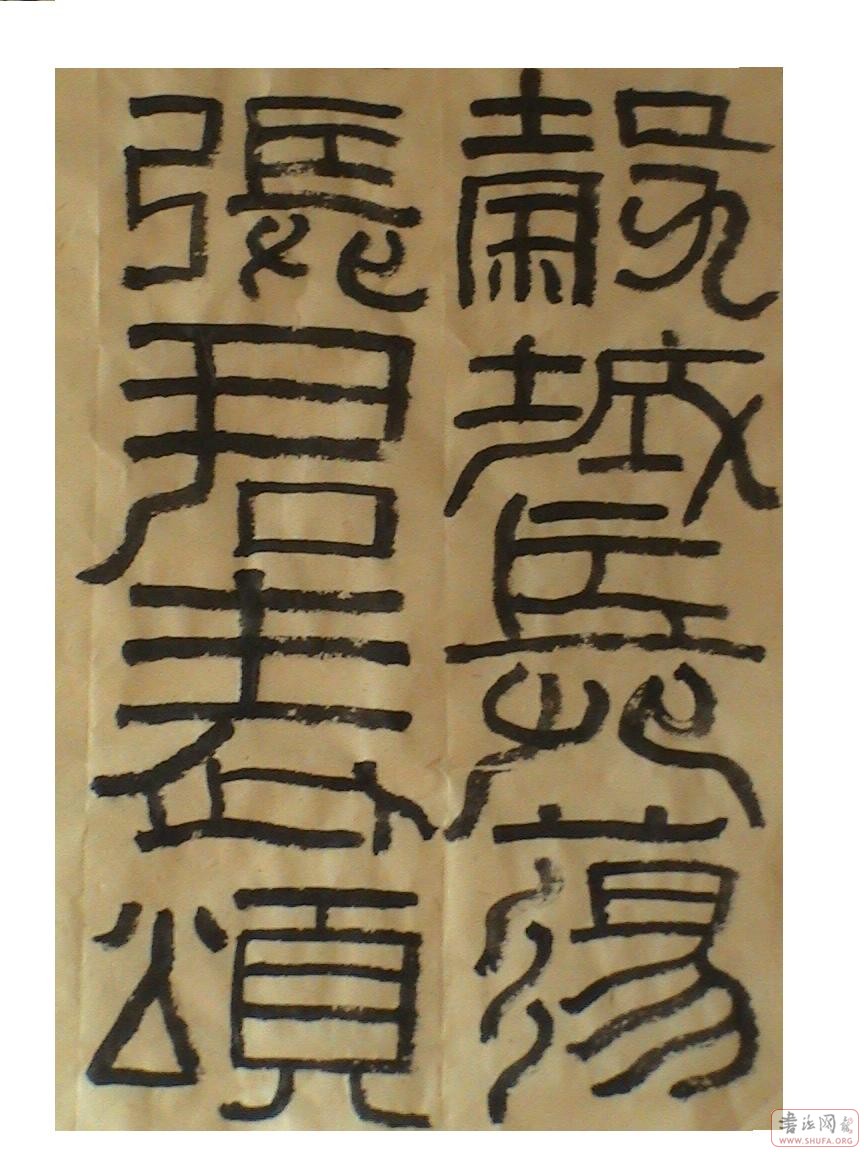 穀城長蕩陰令
張君表頌
书法网
WWW.SHUFA.ORG